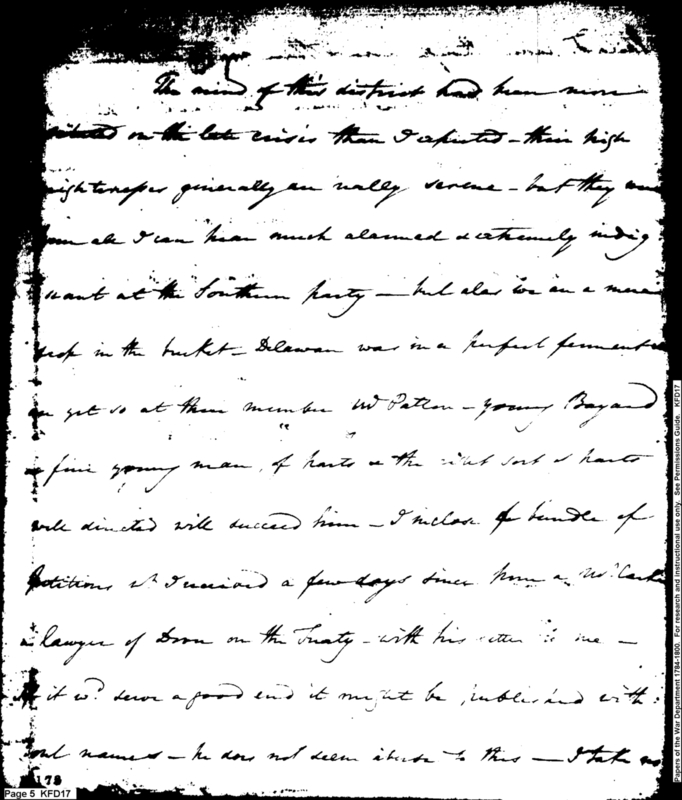 The mind of this district had been more
on the late crisis than I expected – their high
generally are really serene – but they were
from all I can hear much alarmed & extremely indig
nant at the Southern party – but alas we are a mere
drop in the bucket – Delaware was in a perfect ferment &
are yet so at their member Mr Patton – young Bayard
a fine young man, of parts & the right sort of parts
well directed will succeed him – I inclose a bundle of
petitions wh. I received a few days since from a Mr.
a lawyer of Dover on the Treaty – with his letter to me –
If it wd. serve a good end it might be published with
out names – he does not seem averse to this – I take no
78
Page 5 KFD17
Papers of the War Department 1784-1800. For research and instructional use only. See Permissions Guide. KFD17